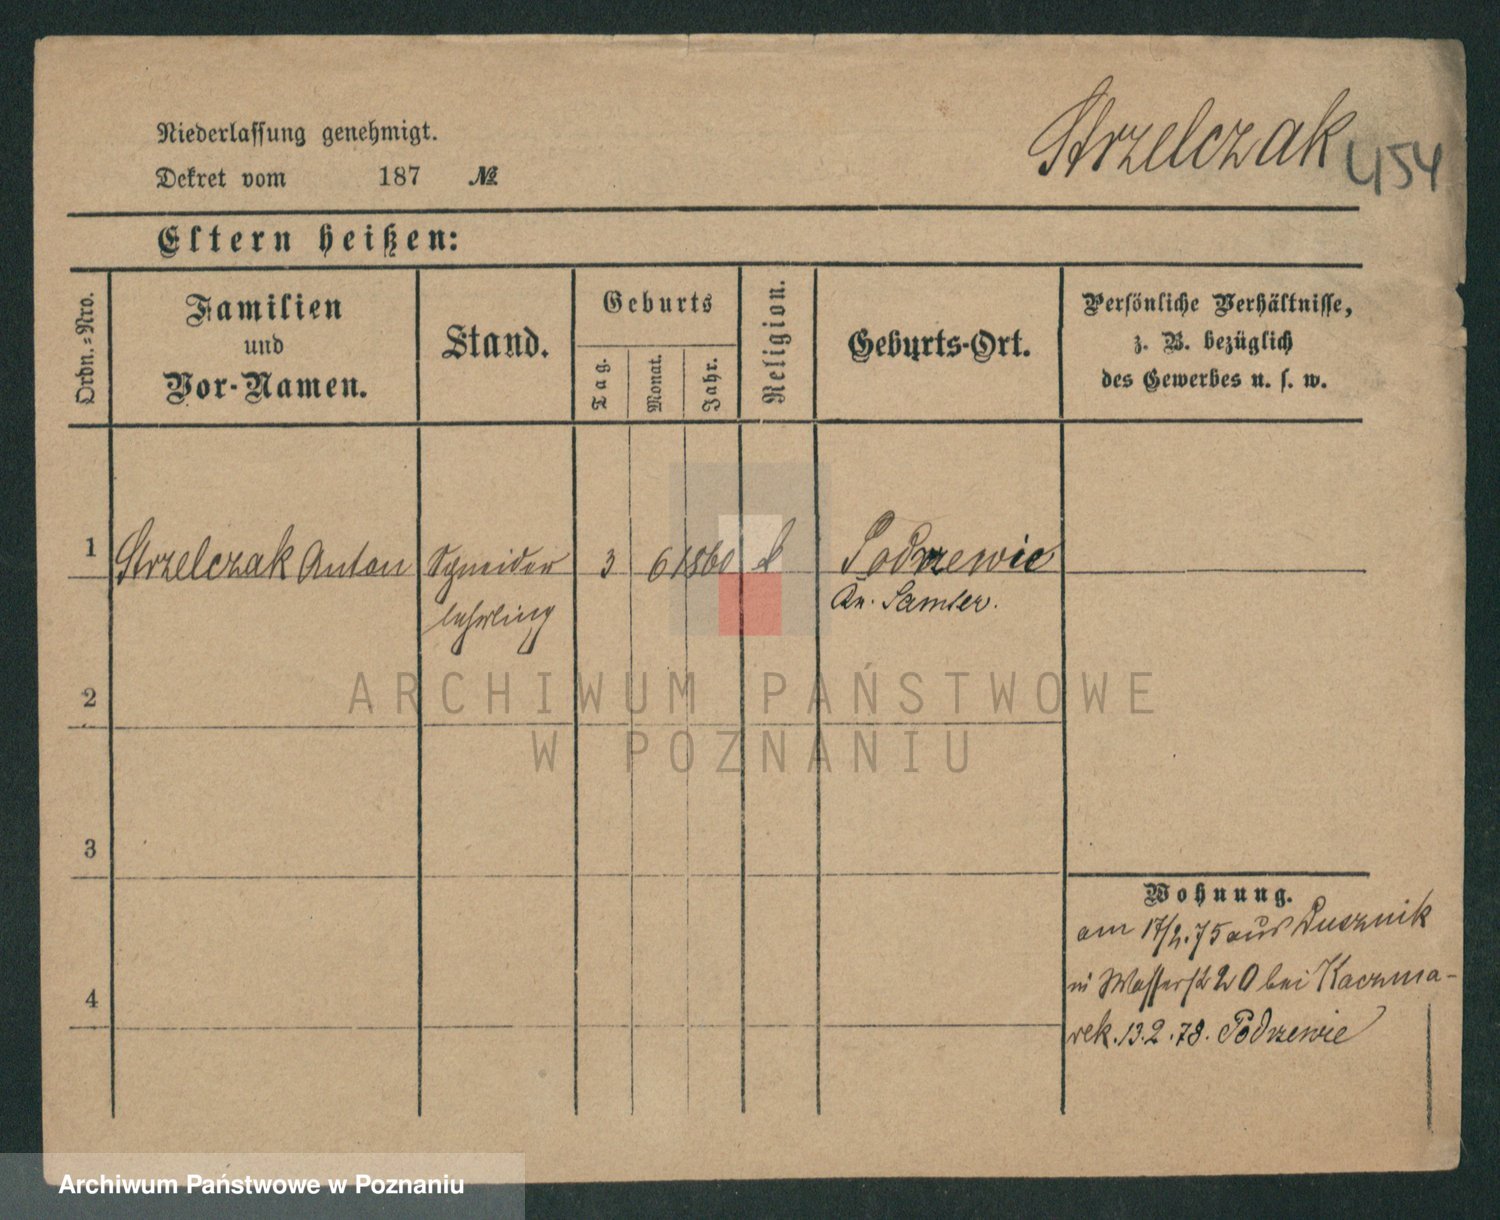 Niederlassung genehmigt.
Dekret vom 187 №
Strzelczak 454
Eltern heißen:
Ordn.-Nro.
Familien
und
Vor-Namen.
Stand.
Geburts
Tag.
Monat.
Jahr.
Religion.
Geburts-Ort.
Persönliche Verhältnisse,
z. B. bezüglich
des Gewerbes u. s. w.
1 Strzelczak Anton Schneider 3 6 1860 Podrzewie
lehrling Kr. Samter.
2
3
4
Wohnung.
am 17/2.75 aus Dusznik
in Wasserstr 20 bei Kaczma-
rek. 13.2.78. Podrzewie
ARCHIWUM PAŃSTWOWE
W POZNANIU
Archiwum Państwowe w Poznaniu